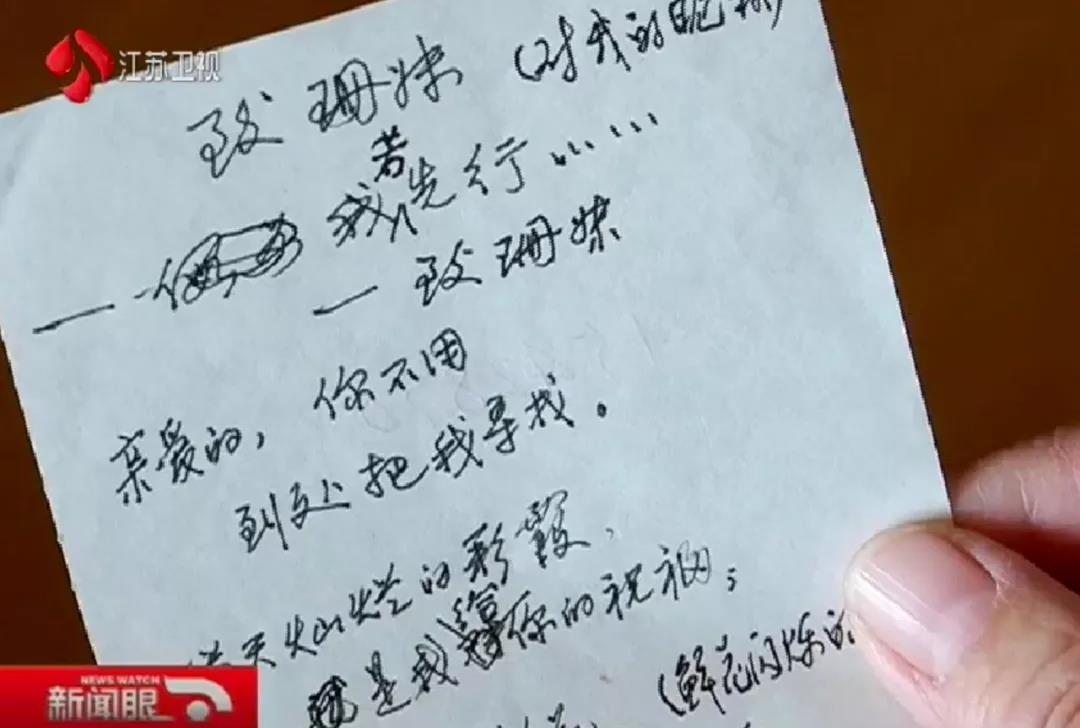 江苏卫视
致珊妹（对我的昵称）
若
我先行……
—致珊妹
亲爱的，你不用
到处把我寻找。
满天灿烂的彩霞，
是我给你的祝福；
（鲜花闪烁的
NEWS WATCH
新闻眼